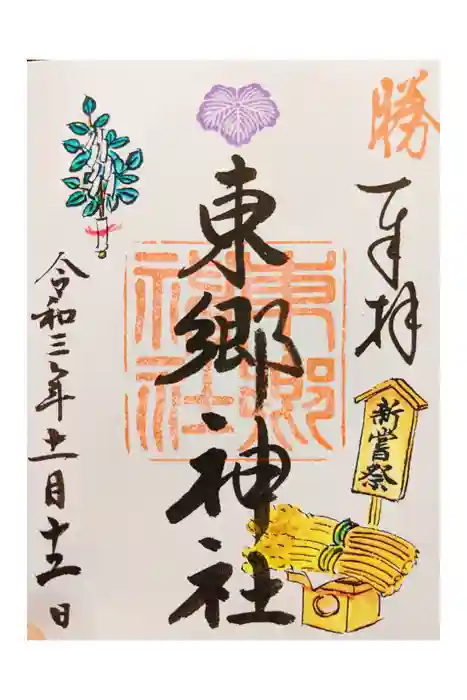 勝
奉拝
新嘗祭
東郷神社
東郷
神社
令和三年十一月十三日